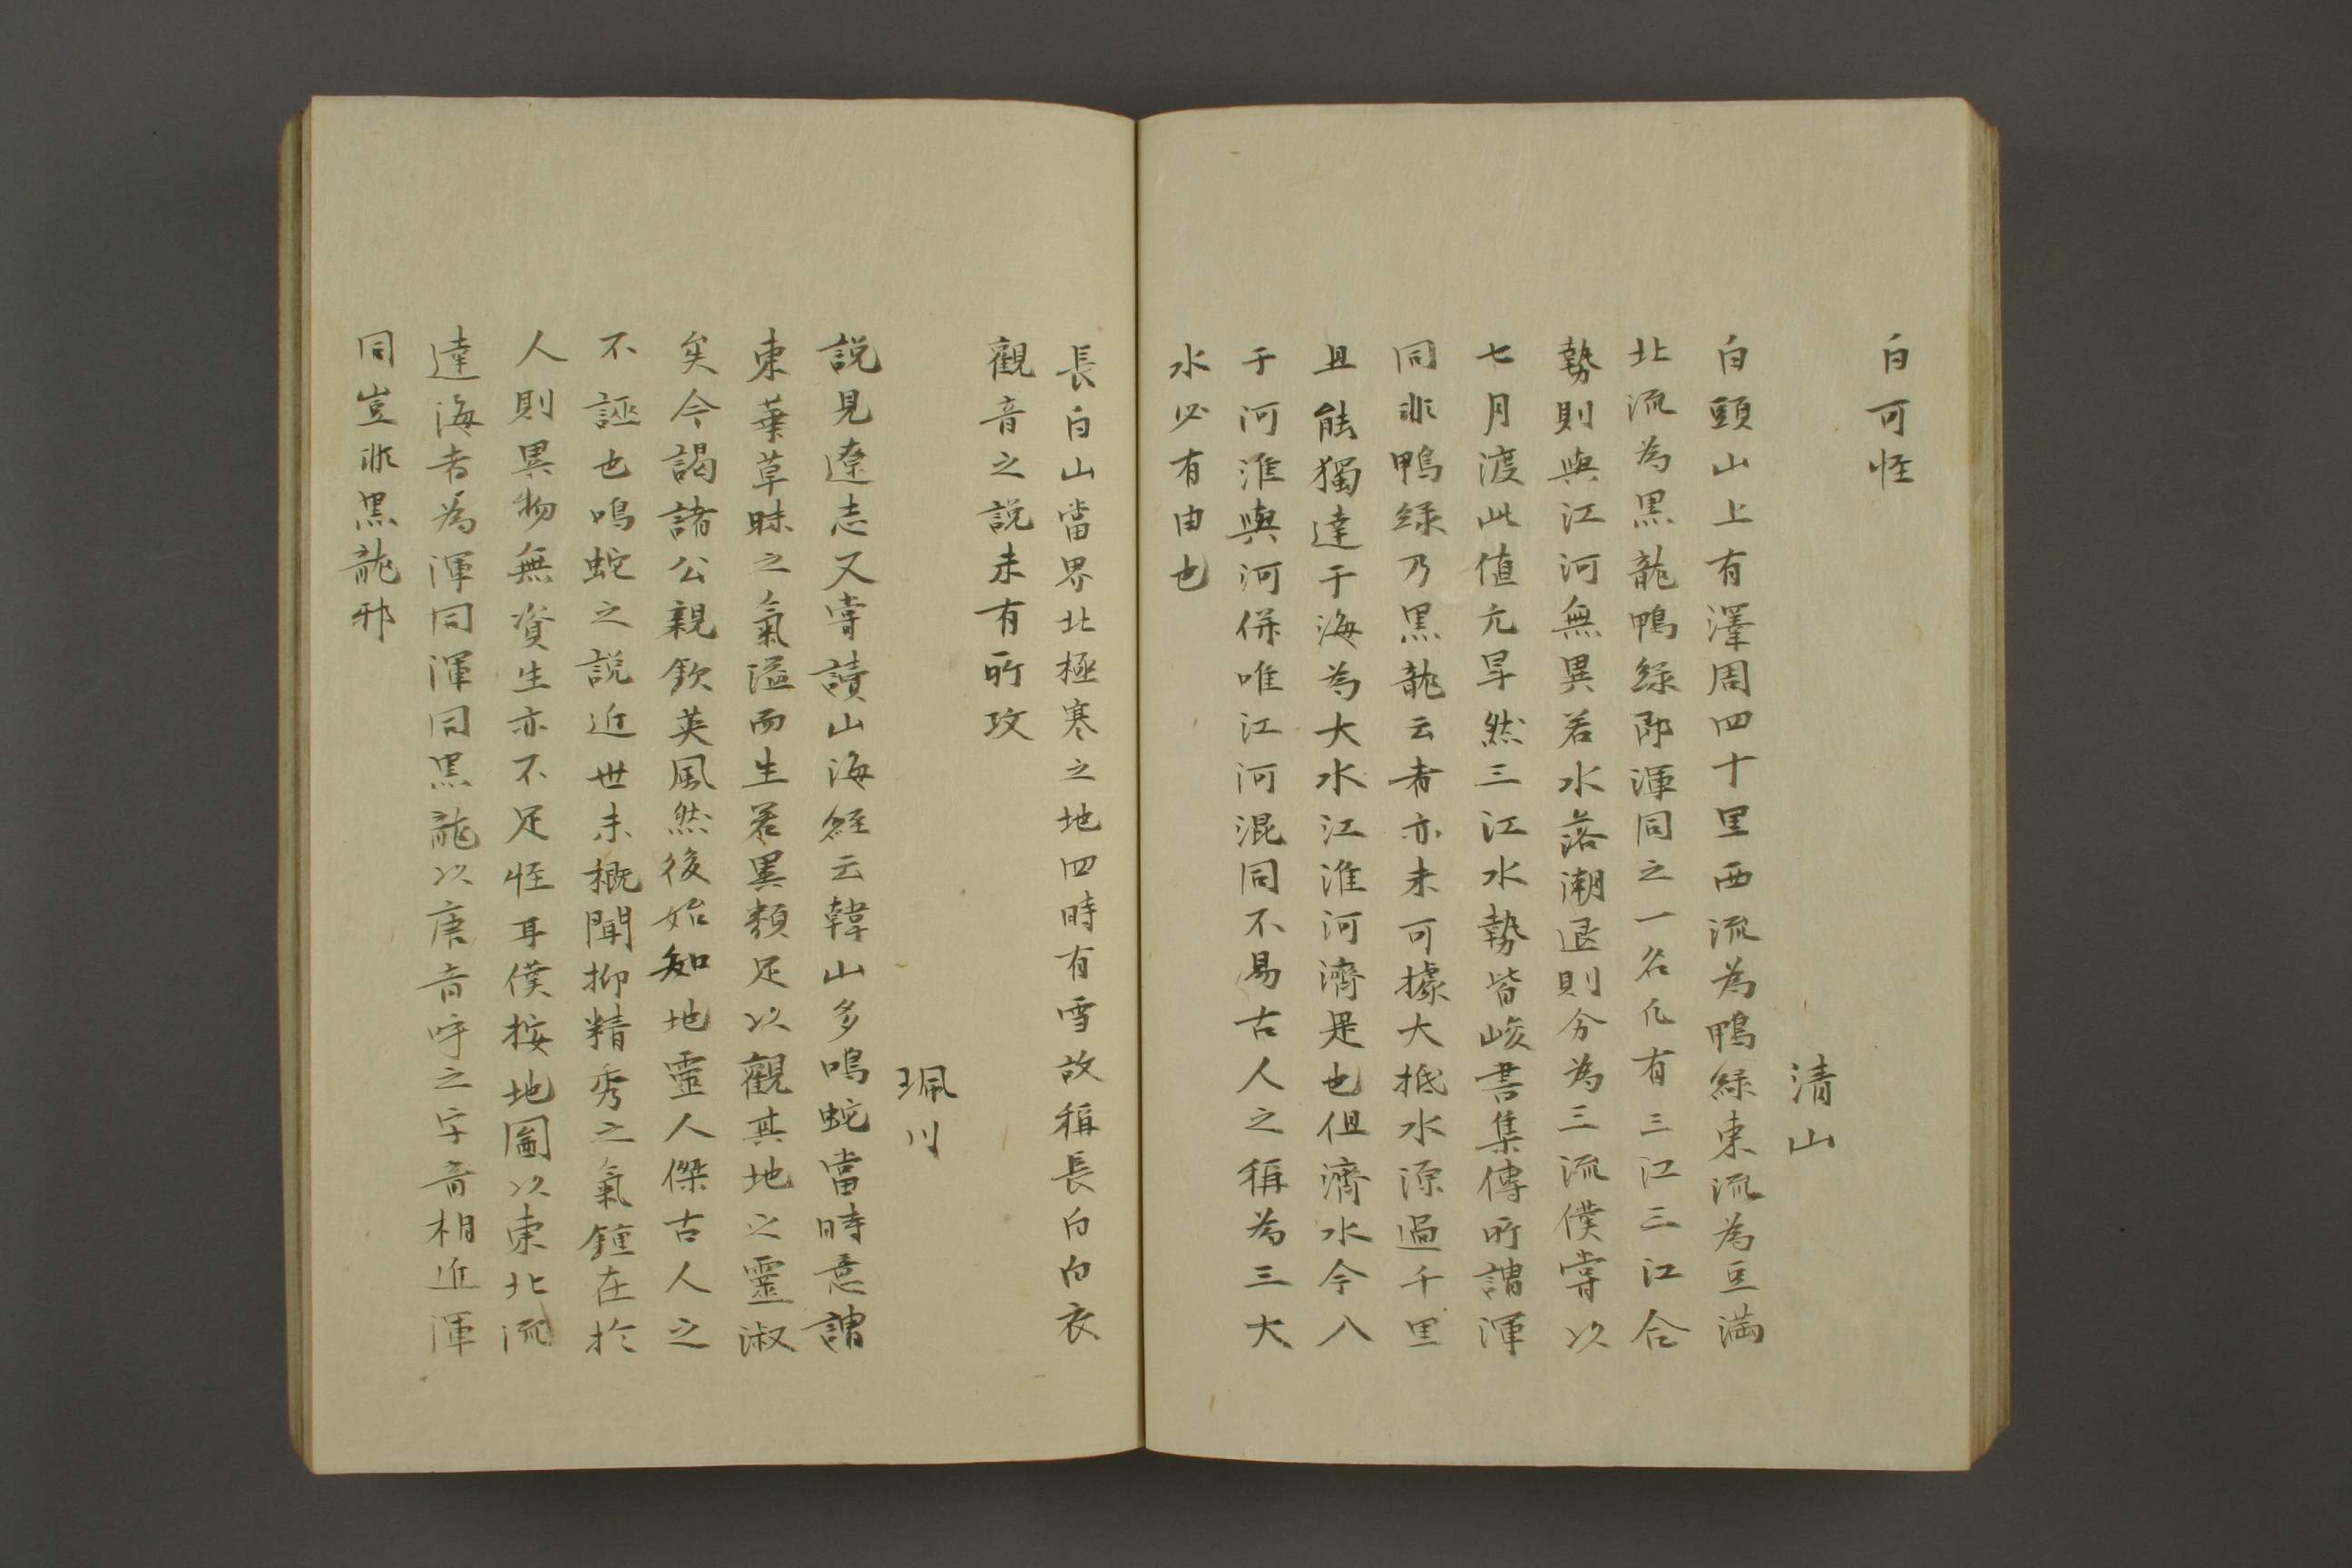 白可怪
清山
白頭山上有澤周四十里西流為鴨綠東流為豆滿
北流為黒龍鴨綠即渾同之一名凢有三江三江合
勢則與江河無異若水落潮退則分為三流僕嘗以
七月渡此值亢旱然三江水勢皆峻書集傳所謂渾
同非鴨綠乃黒龍云者亦未可據大抵水源過千里
且能獨達于海為大水江淮河濟是也但濟水今入
于河淮與河併唯江河混同不易古人之稱為三大
水必有由也
長白山當界北極寒之地四時有雪故稱長白白衣
觀音之説未有所攻
珮川
説見遼志又嘗讀山海經云韓山多鳴蛇當時意謂
東華草昧之氣溢而生若異類足以觀其地之靈淑
矣今謁諸公親欽英風然後始知地靈人傑古人之
不誣也鳴蛇之説近世未概聞抑精秀之氣鍾在於
人則異物無資生亦不足怪耳僕按地圖以東北流
達海者為渾同渾同黒龍以唐音呼之字音相近渾
同豈非黒龍邪